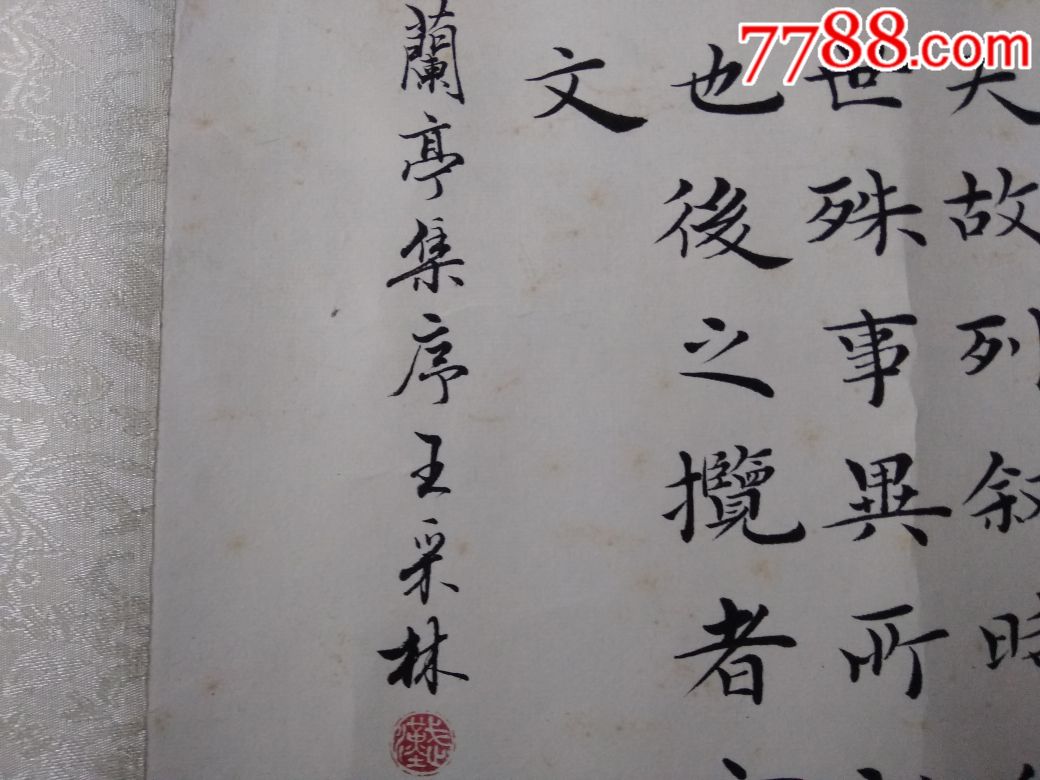 7788.com
故列叙時
世殊事異所
也後之攬者
文
蘭亭集序王采林